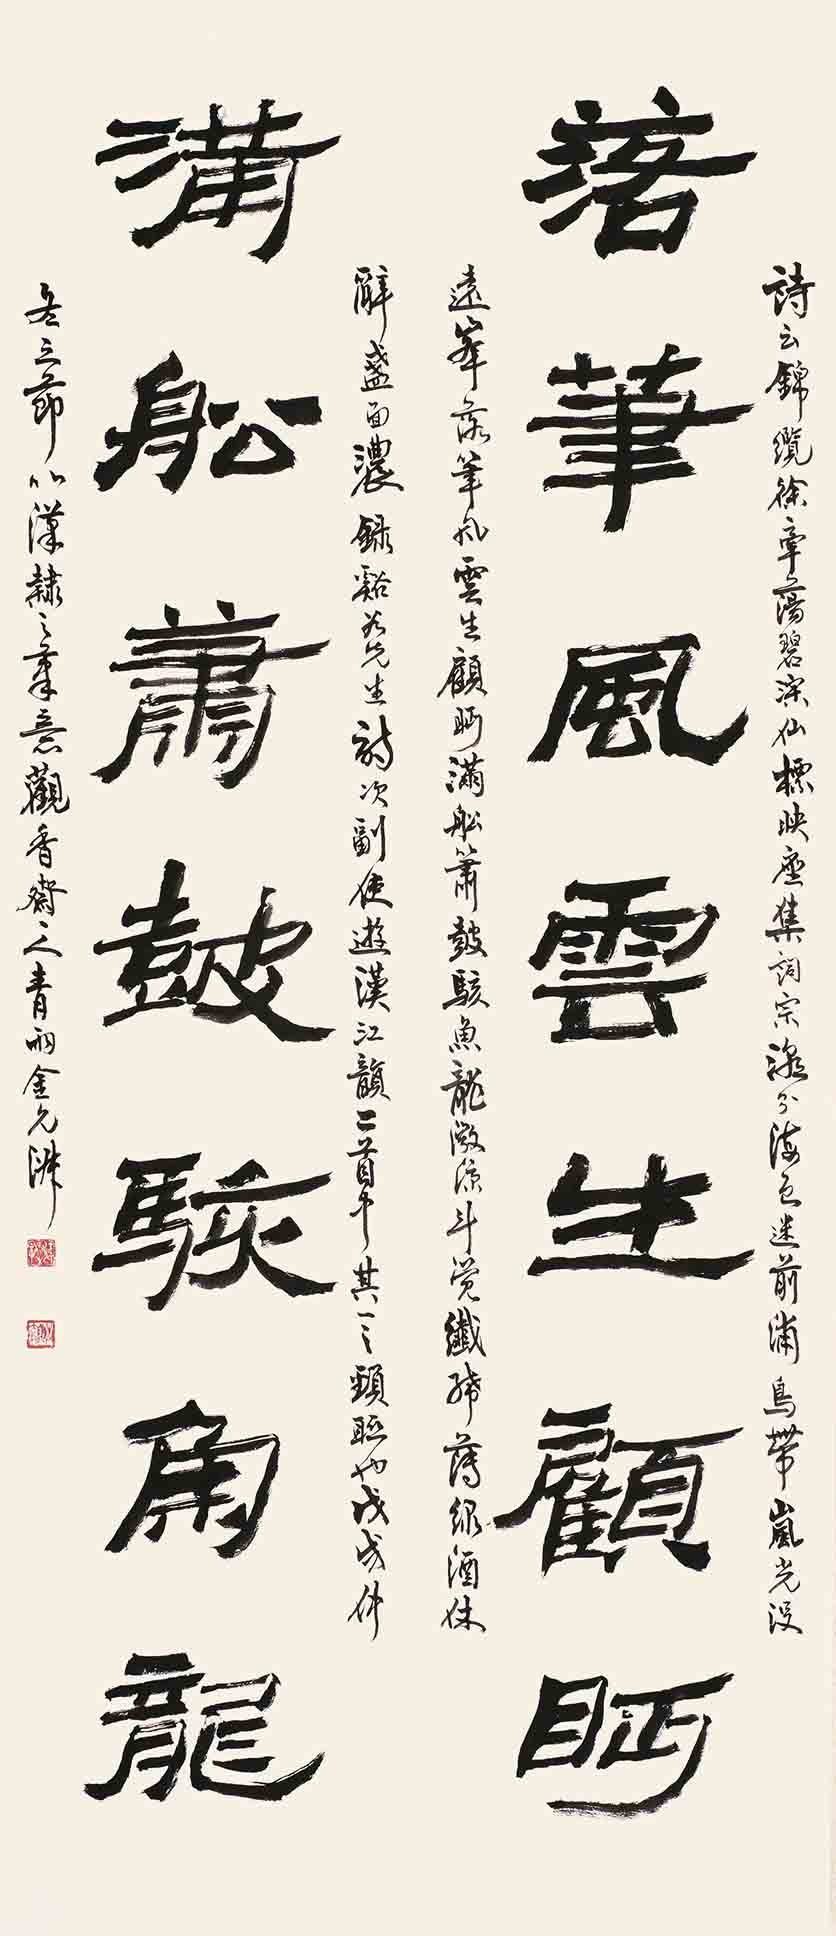 詩云錦纜徐牽蕩碧淙仙標映座集詞宗 分海色迷前浦鳥帶嵐光沒
落筆風雲生顧眄
遠峯落筆風雲生顧眄滿船簫鼓駭魚龍微涼斗覺纖絺薄綠酒休
辭盞面濃錄谿谷先生詩次副使遊漢江韻二首中其一之頸聯也戊戌仲
滿船蕭鼓駭角龍
冬之節以漢隸之筆意觀香齋 人青雨金允